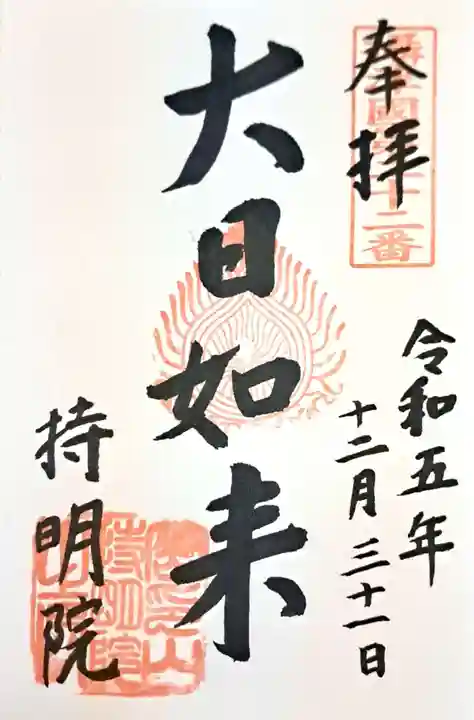 奉拝
令和五年
十二月三十一日
大日如来
持明院